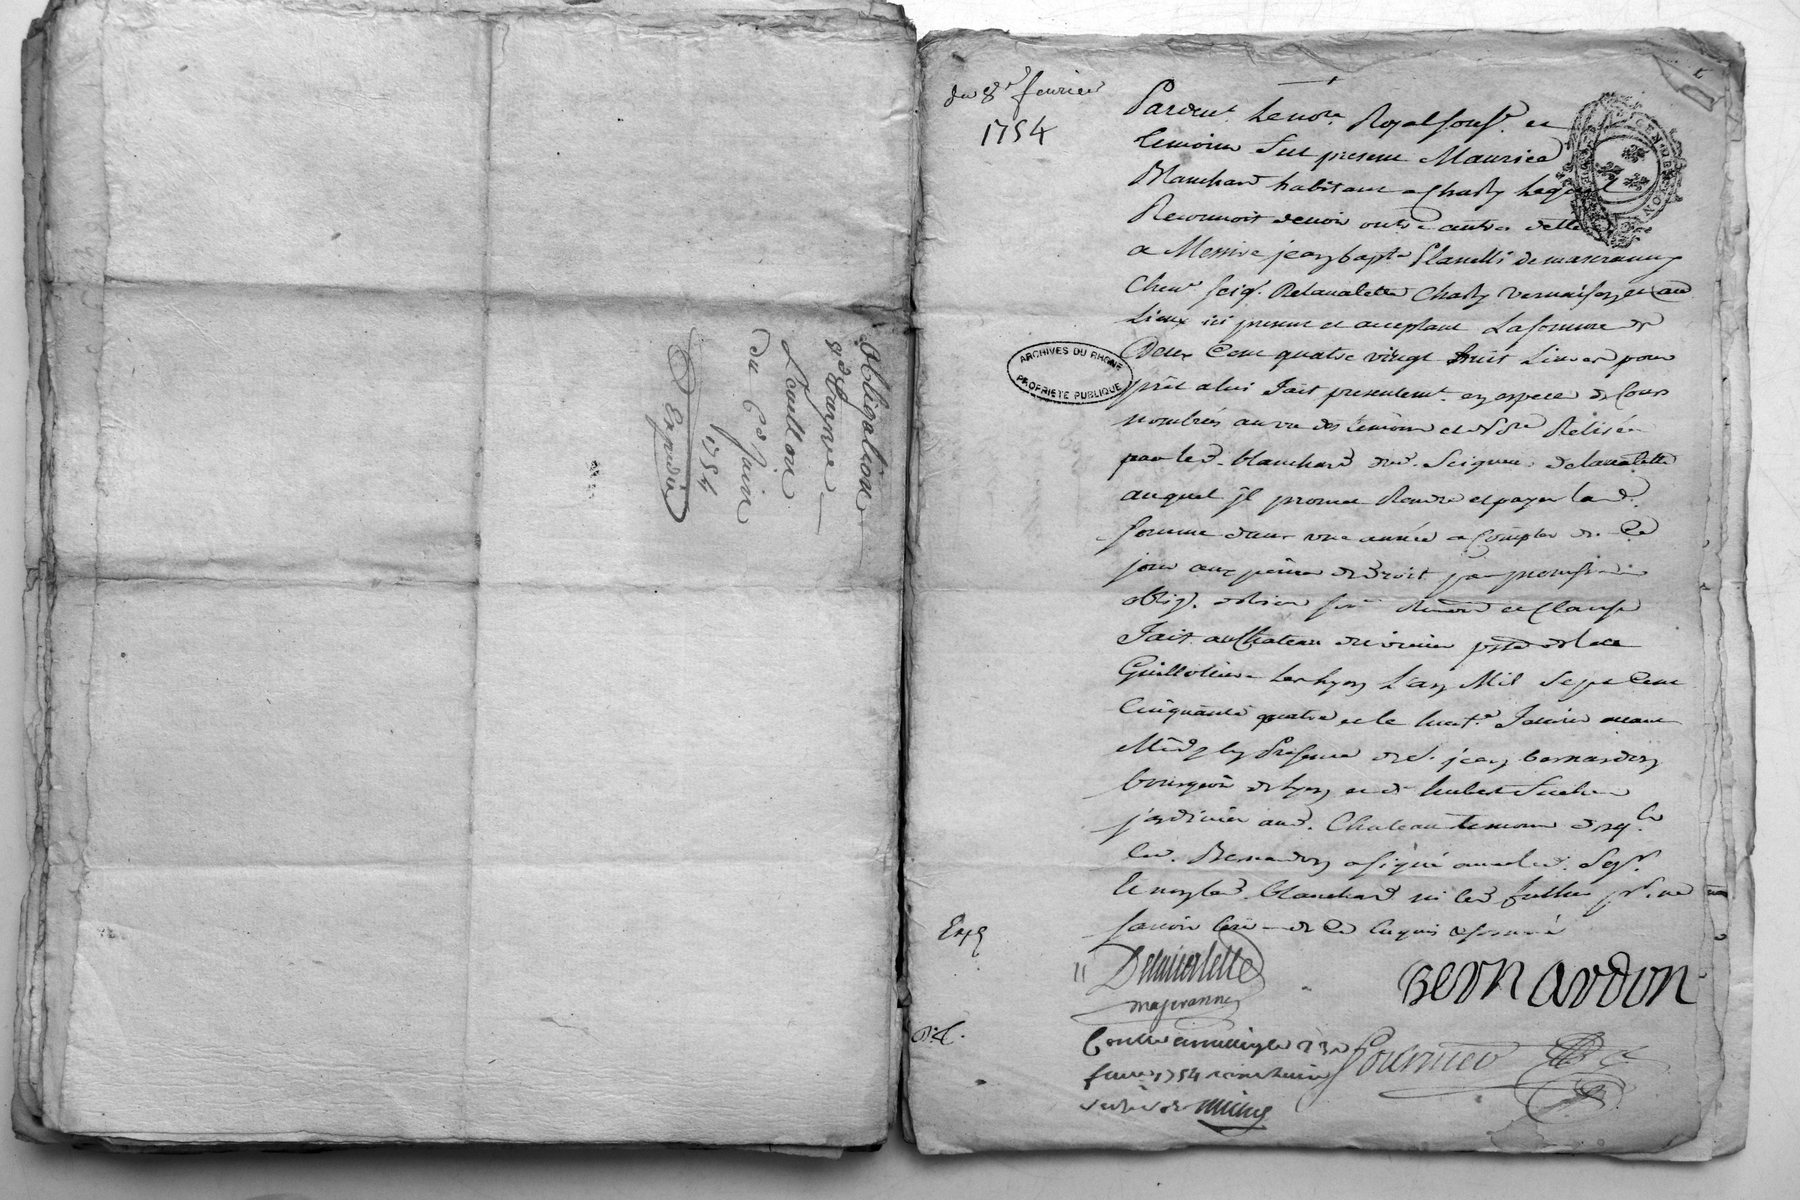 Obligation
Leullion
du 6e Juin
1754
Expedié
du 8e fevrier
1754
Pardevt. le notre. Royal sousé. et
temoins fut present Maurice
Blanchard habitant a Charly lequel
Reconnoit devoir outre autres dettes
a Messire jean bapte. Planelli demascranny
Chevr. seigr. Delavalette Charly vernaison et autres
Lieux ici present et acceptant La somme de
Deux Cent quatre vingt huit Livres pour
prêt a lui fait presentemt. en espece de Cours
nombrées au vu des temoins et Nore Retirée
par led. blanchard dud. Seigneur delavalette
auquel il promet Rendre et payer lad.
somme dans une année a Compter de Ce
jour aux peines de droit par
oblig. de biens et Clauses
fait au Chateau de la
Guillotiere Les Lyon L'an Mil Sept Cent
Cinquante quatre et le huite. fevrier avant
Midy En Presence de Sr. jean bernardon
bourgeois de Lyon et de hubert
jardinier aud. Chateau temoins
Led. Bernardon a signé avec led. Seigr.
et non led. blanchard ni led. pr. ne
savoir de Ce Enquis et sommé
Exp
Delavalette
mascranny
Bernardon
Controllé
fevrier 1754
ARCHIVES DU RHONE
PROPRIETE PUBLIQUE